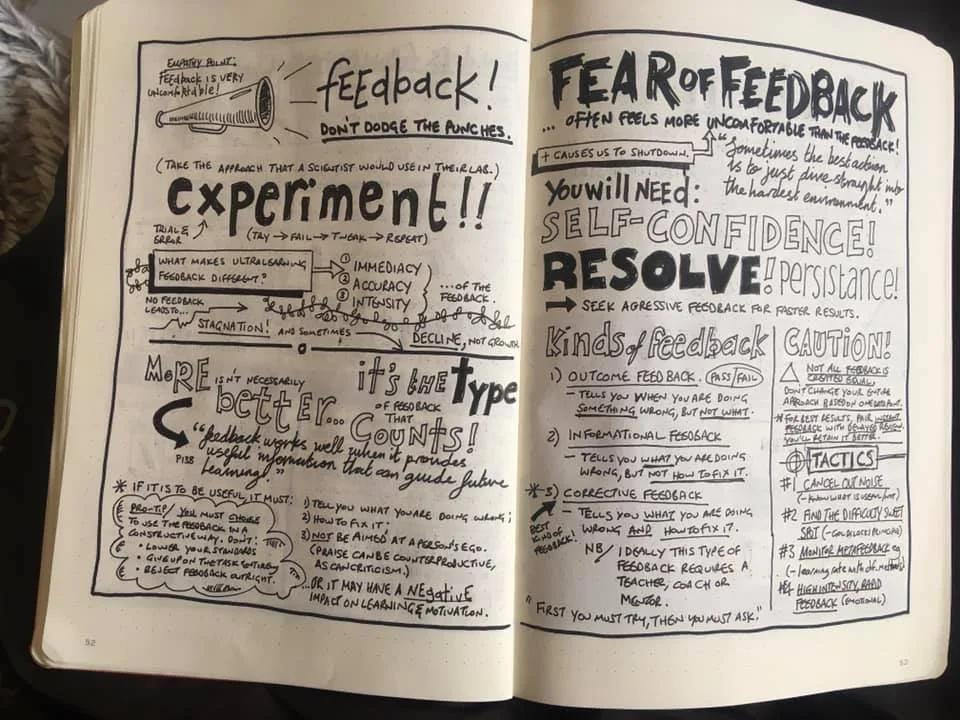 EMPATHY POINT:
FEEDBACK IS VERY
UNCOMFORTABLE!
feedback!
DON'T DODGE THE PUNCHES.
(TAKE THE APPROACH THAT A SCIENTIST WOULD USE IN THEIR LAB.)
experiment!!
TRIAL &
ERROR
(TRY → FAIL → TWEAK → REPEAT)
WHAT MAKES ULTRALEARNING
FEEDBACK DIFFERENT?
① IMMEDIACY
② ACCURACY
③ INTENSITY
...OF THE
FEEDBACK.
NO FEEDBACK
LEADS TO...
STAGNATION!
AND SOMETIMES
DECLINE, NOT GROWTH
MORE ISN'T NECESSARILY
better...
it's the type
OF FEEDBACK
THAT
COUNTS!
"feedback works well when it provides
useful information that can guide future
learning."
P138
* IF IT IS TO BE USEFUL, IT MUST:
PRO-TIP / YOU MUST CHOOSE
TO USE THE FEEDBACK IN A
CONSTRUCTIVE WAY. DON'T:
• LOWER YOUR STANDARDS
• GIVE UP ON THE TASK ENTIRELY
• REJECT FEEDBACK OUTRIGHT.
1) TELL YOU WHAT YOU ARE DOING WRONG;
2) HOW TO FIX IT;
3) NOT BE AIMED AT A PERSON'S EGO.
(PRAISE CAN BE COUNTERPRODUCTIVE,
AS CAN CRITICISM.)
...OR IT MAY HAVE A NEgative
IMPACT ON LEARNING & MOTIVATION.
52
FEAR OF FEEDBACK
... OFTEN FEELS MORE UNCOMFORTABLE THAN THE FEEDBACK!
+ CAUSES US TO SHUTDOWN.
"Sometimes the best action
is to just dive straight into
the hardest environment."
You will NEED:
SELF-CONFIDENCE!
RESOLVE! persistance!
→ SEEK AGRESSIVE FEEDBACK FOR FASTER RESULTS.
Kinds of feedback
1) OUTCOME FEEDBACK. (PASS/FAIL)
– TELLS YOU WHEN YOU ARE DOING
SOMETHING WRONG, BUT NOT WHAT.
2) INFORMATIONAL FEEDBACK
– TELLS YOU WHAT YOU ARE DOING
WRONG, BUT NOT HOW TO FIX IT.
* 3) CORRECTIVE FEEDBACK
– TELLS YOU WHAT YOU ARE DOING
WRONG AND HOW TO FIX IT.
BEST
KIND OF
FEEDBACK!
NB/ IDEALLY THIS TYPE OF
FEEDBACK REQUIRES A
TEACHER, COACH OR
MENTOR.
"FIRST YOU MUST TRY, THEN YOU MUST ASK."
CAUTION!
NOT ALL FEEDBACK IS
CREATED EQUAL.
DON'T CHANGE YOUR ENTIRE
APPROACH BASED ON ONE DATA PT.
* FOR BEST RESULTS, PAIR
FEEDBACK WITH DELAYED REVIEW.
YOU'LL RETAIN IT BETTER.
TACTICS
#1 CANCEL OUT NOISE
(– KNOW WHAT IS USEFUL FIRST)
#2 FIND THE DIFFICULTY SWEET
SPOT (– GOLDILOCKS PRINCIPLE)
#3 MONITOR METAFEEDBACK eg
(– learning rate with dif. methods)
#4 HIGH INTENSITY, RAPID
FEEDBACK (EMOTIONAL)
52